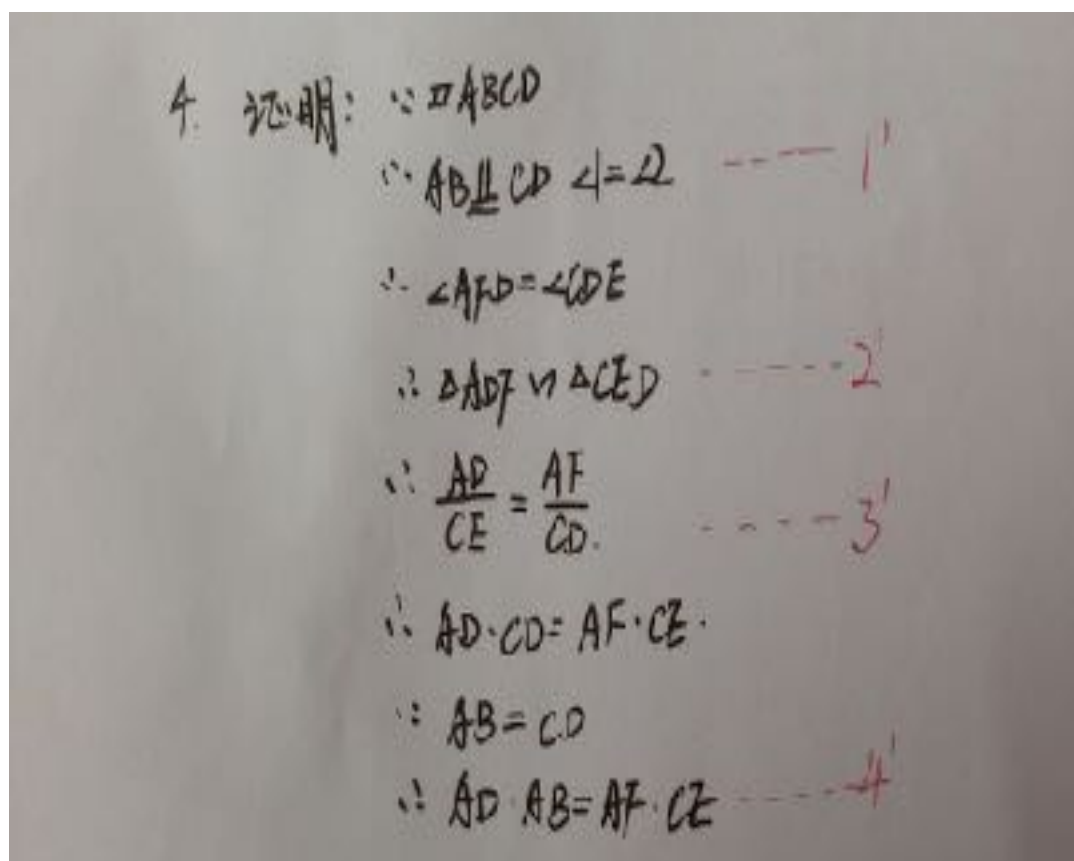 4. 证明: ∵ ▱ABCD
∴ AB∥=CD ∠1=∠2 ------ 1'
∴ ∠AFD=∠CDE
∴ △ADF∽△CED ------ 2'
∴ AD/CE = AF/CD. ------ 3'
∴ AD·CD=AF·CE.
∵ AB=CD
∴ AD·AB=AF·CE ------ 4'